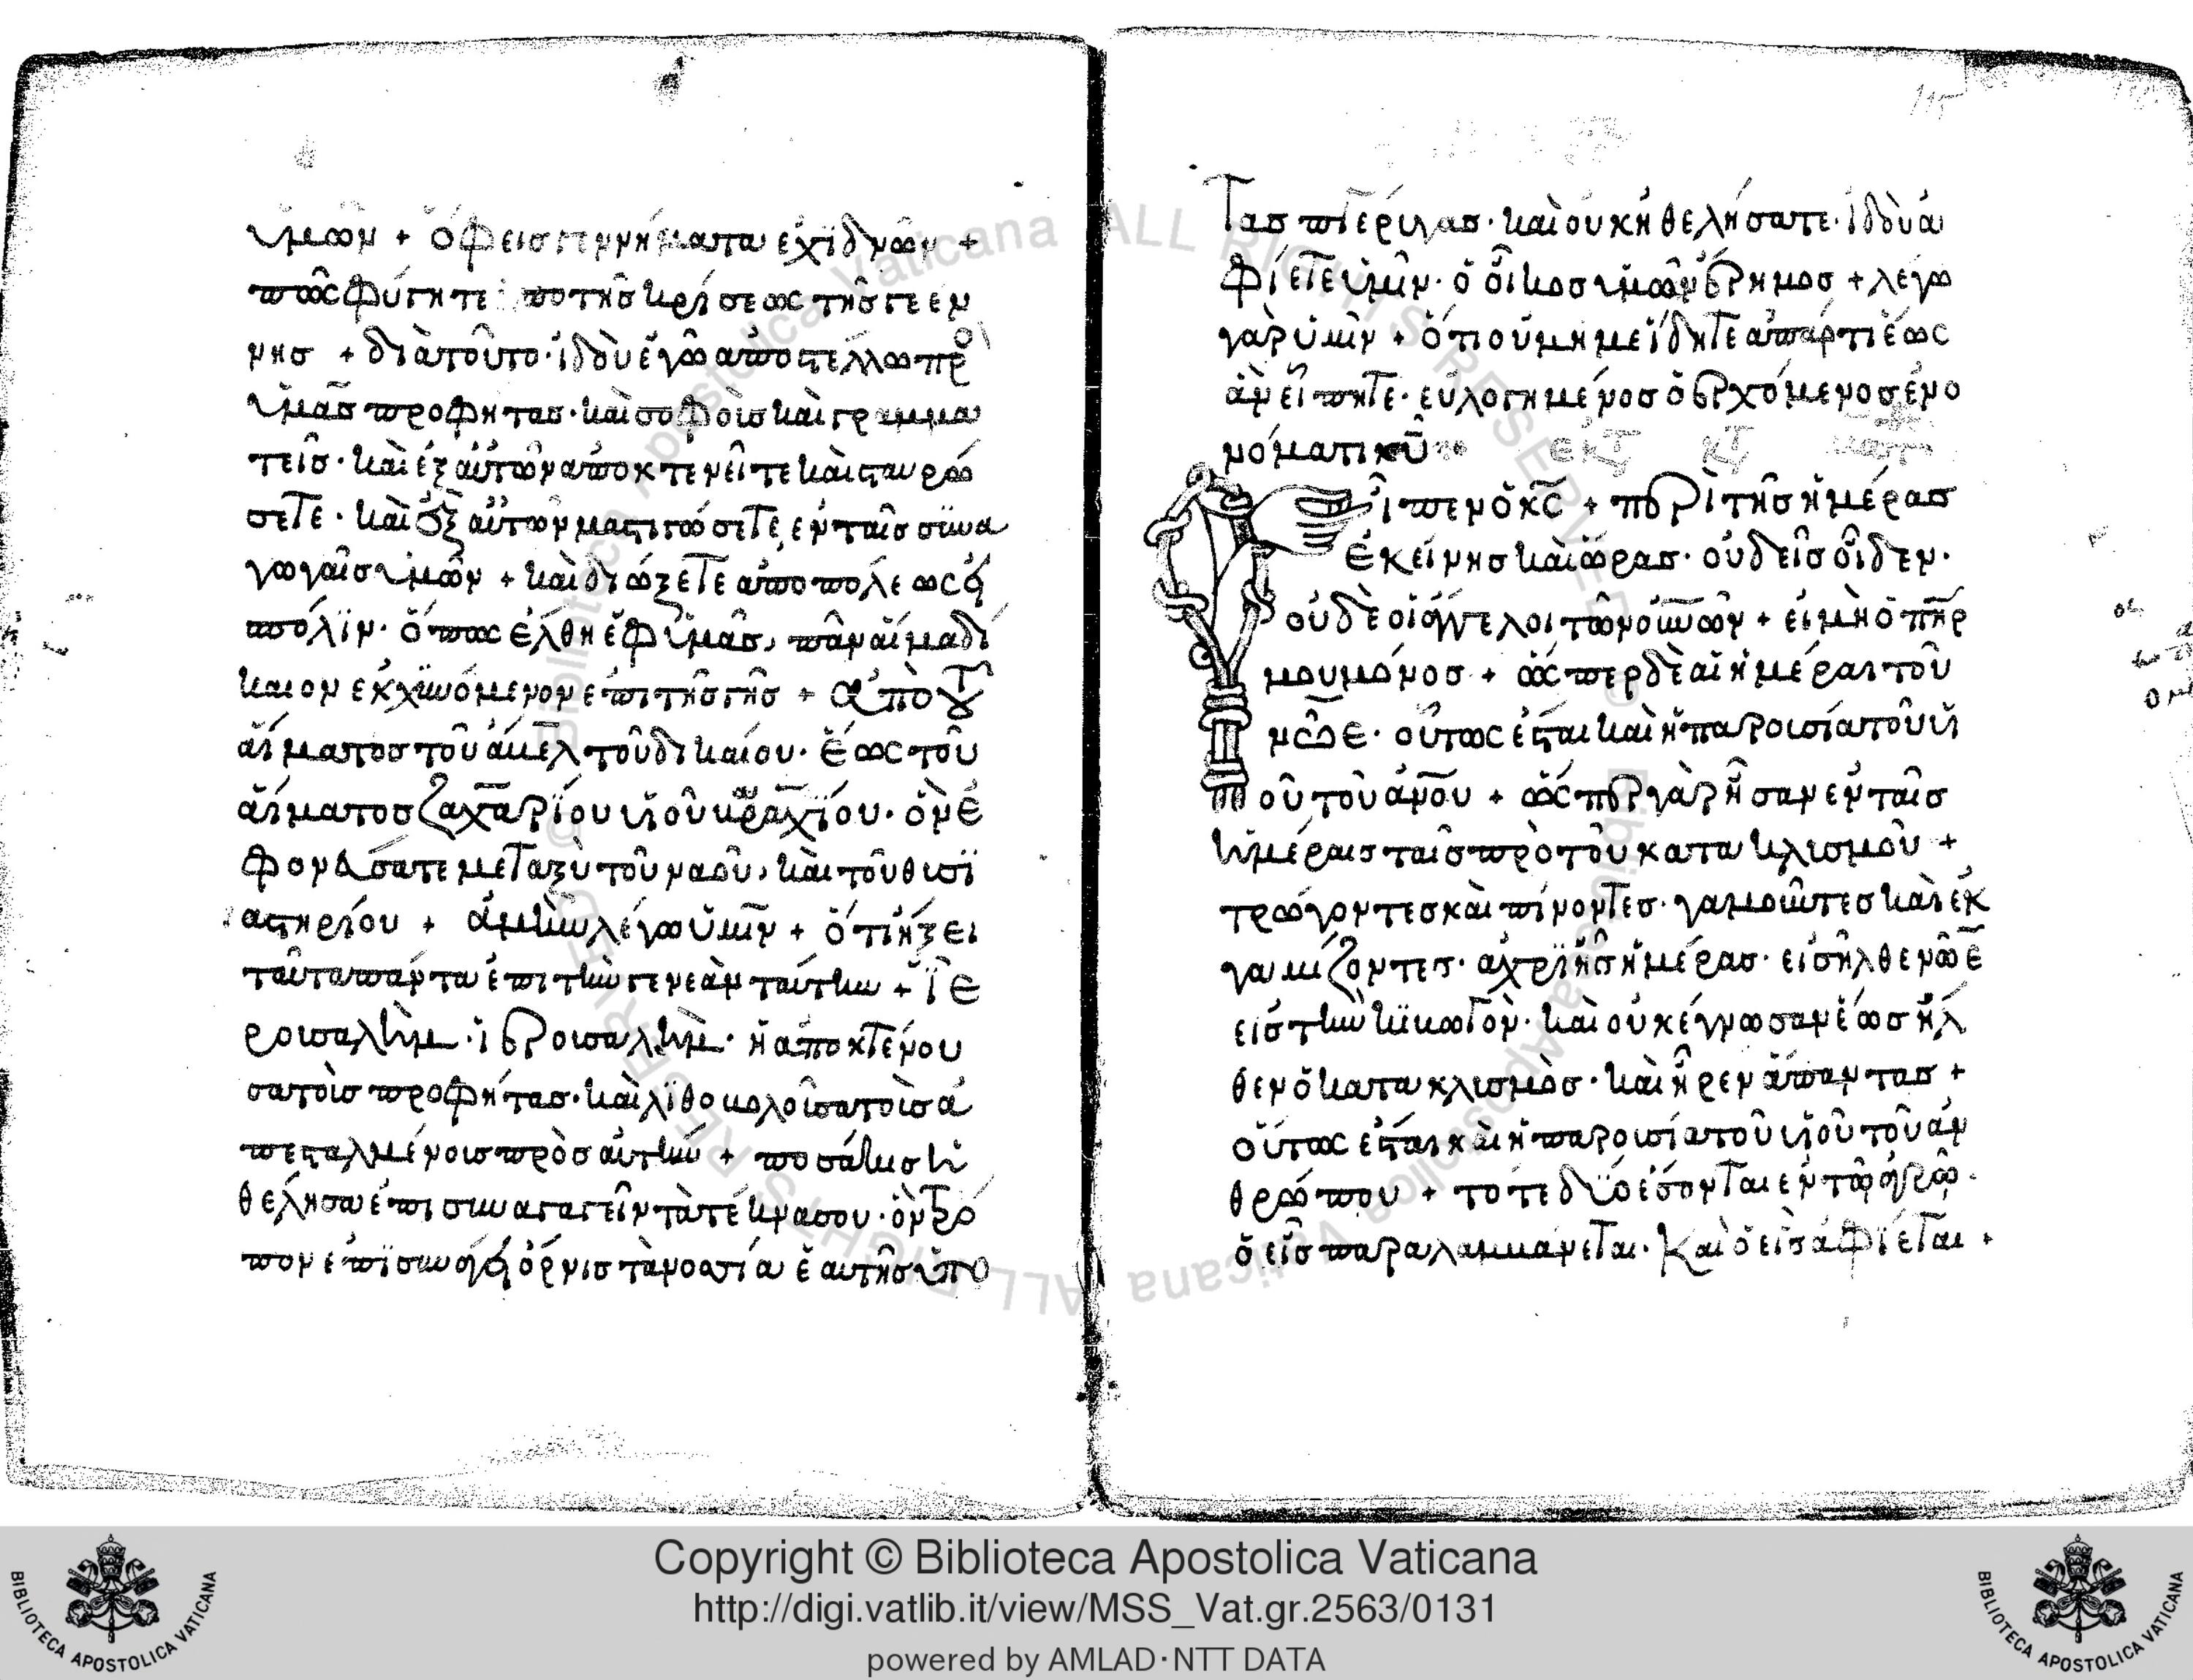 ὑμῶν + ὄφεις γεννήματα ἐχϊδνῶν +
πῶς φύγητε ἀπὸ τῆς κρίσεως τῆς γεέν
νης + διὰ τοῦτο· ἰδοὺ ἐγὼ ἀποστέλλω πρὸ
ὑμᾶς προφήτας· καὶ σοφοὺς καὶ γραμμα
τεῖς· καὶ ἐξ αὐτῶν ἀποκτενεῖτε καὶ σταυρώ
σετε· καὶ ἐξ αὐτῶν μαστιγώσετε ἐν ταῖς συνα
γωγαῖς ὑμῶν + καὶ διώξετε ἀπὸ πόλεως εἰ
πόλϊν· ὅπως ἔλθη ἐφ' ὑμᾶς, πᾶν αἷμα δί
καιον ἐκχϋνόμενον ἐπὶ τῆς γῆς + ἀπὸ τοῦ
αἵματος τοῦ ἄμελ τοῦ δικαίου· ἕως τοῦ
αἵματος ζαχαρίου υἱοῦ βαραχίου· ὃν ἐ
φονεύσατε μεταξὺ τοῦ ναοῦ, καὶ τοῦ θυσϊ
αστηρίου + ἀμὴν λέγω ὑμῖν + ὅτι ἥξει
ταῦτα πάντα ἐπὶ τὴν γενεὰν ταύτην + ϊε
ρουσαλὴμ· ἱερουσαλὴμ· ἡ ἀποκτένου
σα τοὺς προφήτας· καὶ λϊθοβολοῦσα τοὺς ἀ
πεσταλμένους πρὸς αὐτήν + ποσάκις ἠ
θέλησα ἐπισυναγαγεῖν τὰ τέκνα σου· ὃν τρό
πον ἐπϊσυνάγει ὄρνις τὰ νοσία ἑαυτῆς ὑπὸ
τὰς πτέρυγας· καὶ οὐκ ἠθελήσατε· ἰδοὺ ἀ
φίετε ὑμῖν· ὁ οἶκος ὑμῶν ἔρημος + λέγω
γὰρ ὑμῖν + ὅτι οὐ μή με ἴδητε ἀπάρτι ἕως
ἂν εἴπητε· εὐλογημένος ὁ ἐρχόμενος ἐν ὀ
νόματι κῡ
εἶπεν ὁ κς̄ + περὶ τῆς ἡμέρας
ἐκείνης καὶ ὥρας· οὐδεὶς οἶδεν·
οὐδὲ οἱ ἄγγελοι τῶν οὐνῶν + εἰ μὴ ὁ πηρ
μου μόνος + ὥσπερ δὲ αἱ ἡμέραι τοῦ
νῶε· οὕτως ἔσται καὶ ἡ παρουσία τοῦ υἱ
οῦ τοῦ ἀνου + ὥσπερ γὰρ ἦσαν ἐν ταῖς
ἡμέραις ταῖς πρὸ τοῦ κατακλισμοῦ +
τρώγοντες καὶ πίνοντες· γαμοῦντες καὶ ἐκ
γαμίζοντες· ἄχρϊ ἧς ἡμέρας· εἰσῆλθε νῶε
εἰς τὴν κϊβωτόν· καὶ οὐκ ἔγνωσαν ἕως ἦλ
θεν ὁ κατακλισμὸς· καὶ ἦρεν ἅπαντας +
οὕτως ἔσται καὶ ἡ παρουσία τοῦ υἱοῦ τοῦ ἀν
θρώπου + τότε δϋο ἔσονται ἐν τῶ ἀγρῶ·
ὁ εἷς παραλαμμάνεται· καὶ ὁ εἷς ἀφϊεται +
Copyright © Biblioteca Apostolica Vaticana
http://digi.vatlib.it/view/MSS_Vat.gr.2563/0131
powered by AMLAD·NTT DATA
BIBLIOTECA APOSTOLICA VATICANA
BIBLIOTECA APOSTOLICA VATICANA